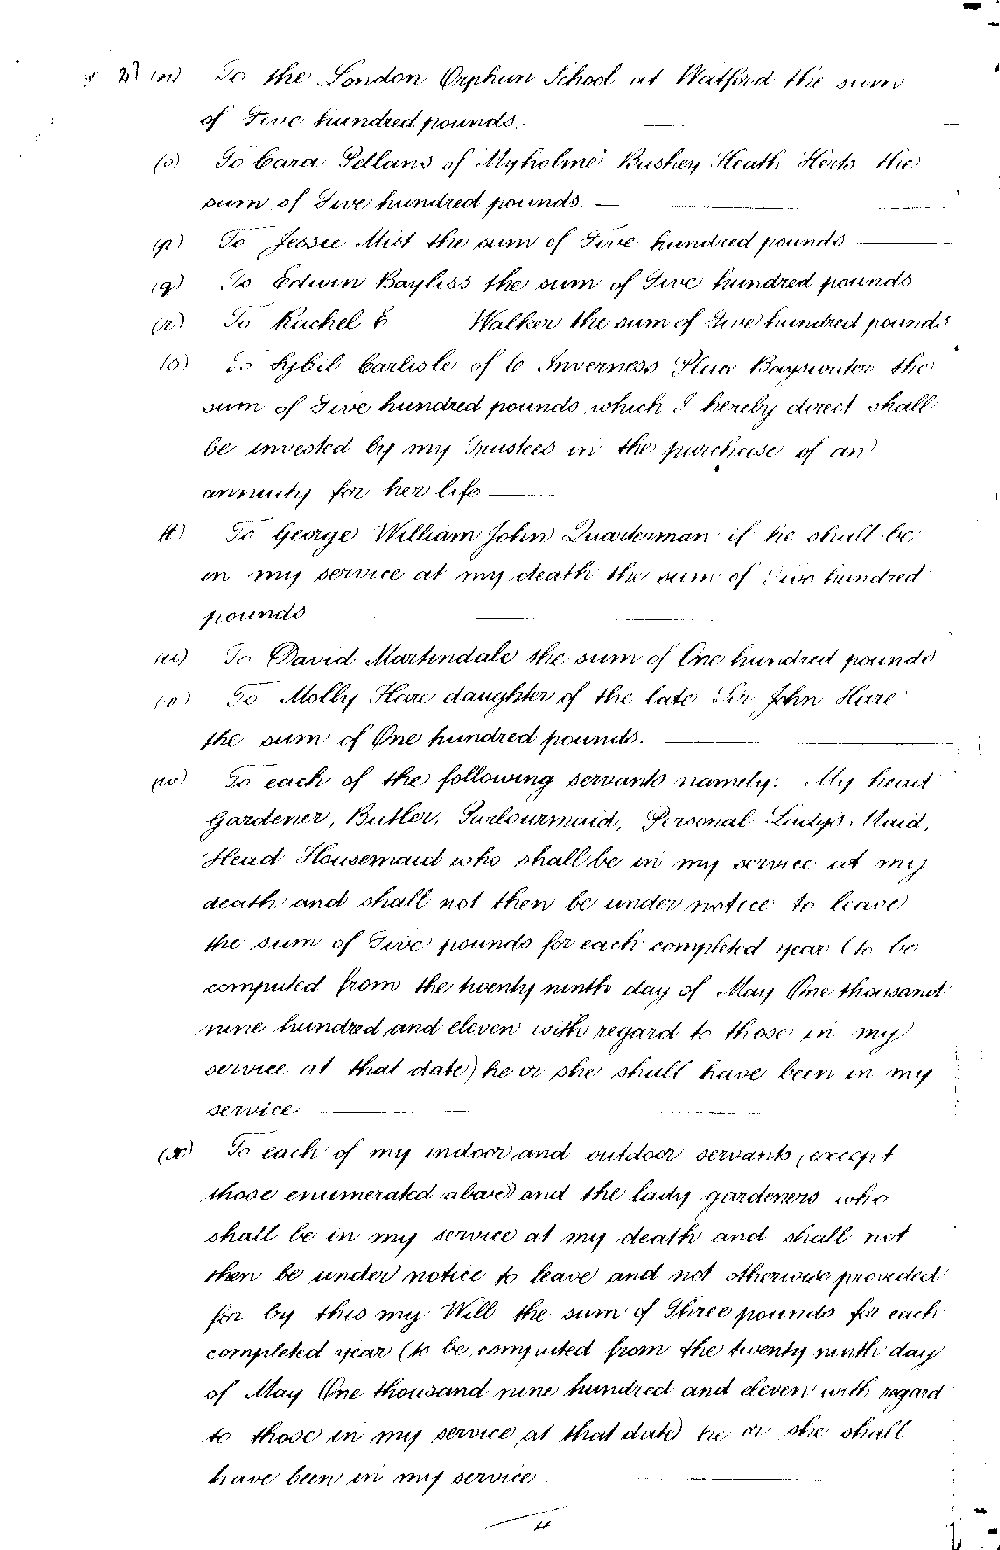 (n) To the London Orphan School at Watford the sum
of Five hundred pounds.
(o) To Cara Pellans of "Myholme" Bushey Heath Herts the
sum of Five hundred pounds
(p) To Jessie Mist the sum of Five hundred pounds
(q) To Edwin Bayliss the sum of Five hundred pounds
(r) To Rachel E Walker the sum of Five hundred pounds
(s) To Sybil Carlisle of 6 Inverness Place Bayswater the
sum of Five hundred pounds which I hereby direct shall
be invested by my Trustees in the purchase of an
annuity for her life
(t) To George William John Quarterman if he shall be
in my service at my death the sum of Five hundred
pounds
(u) To David Martindale the sum of One hundred pounds
(v) To Molly Hare daughter of the late Sir John Hare
the sum of One hundred pounds.
(w) To each of the following servants namely: My head
Gardener, Butler, Parlourmaid, Personal Lady's Maid,
Head Housemaid who shall be in my service at my
death and shall not then be under notice to leave
the sum of Five pounds for each completed year (to be
computed from the twenty ninth day of May One thousand
nine hundred and eleven with regard to those in my
service at that date) he or she shall have been in my
service
(x) To each of my indoor and outdoor servants (except
those enumerated above) and the lady gardeners who
shall be in my service at my death and shall not
then be under notice to leave and not otherwise provided
for by this my Will the sum of Three pounds for each
completed year (to be computed from the twenty ninth day
of May One thousand nine hundred and eleven with regard
to those in my service at that date) he or she shall
have been in my service
4